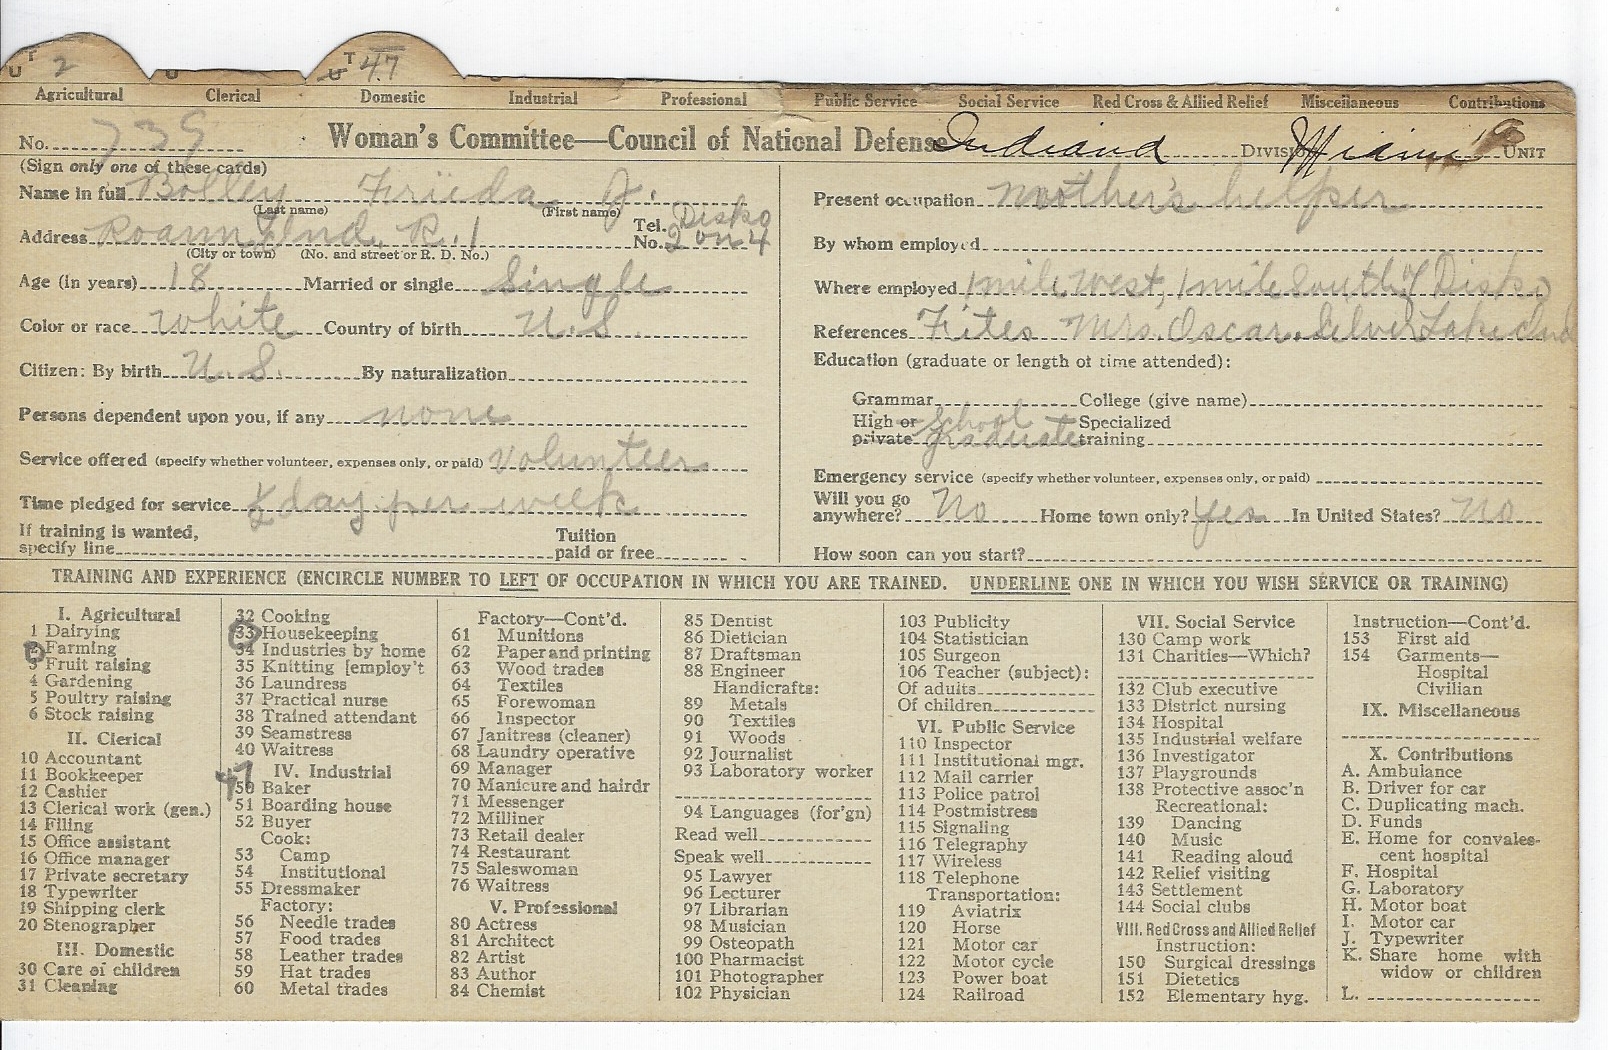 U T 2 U U T 47
Agricultural Clerical Domestic Industrial Professional Public Service Social Service Red Cross & Allied Relief Miscellaneous Contributions
No. 739 Woman's Committee—Council of National Defense Indiana Division Miami Unit
(Sign only one of these cards)
Name in full Bolley Frieda J.
(Last name) (First name)
Address Roann Ind. R. 1 Tel. No. Disko 2 on 4
(City or town) (No. and street or R. D. No.)
Age (in years) 18 Married or single Single
Color or race White Country of birth U.S.
Citizen: By birth U.S. By naturalization
Persons dependent upon you, if any none
Service offered (specify whether volunteer, expenses only, or paid) Volunteer
Time pledged for service ½ day per week
If training is wanted, specify line Tuition paid or free
Present occupation Mother's helper
By whom employed
Where employed 1 mile West, 1 mile South of Disko
References Fites Mrs. Oscar. Silver Lake Ind
Education (graduate or length of time attended):
Grammar College (give name)
High or private School graduate Specialized training
Emergency service (specify whether volunteer, expenses only, or paid)
Will you go anywhere? No Home town only? Yes In United States? No
How soon can you start?
TRAINING AND EXPERIENCE (ENCIRCLE NUMBER TO LEFT OF OCCUPATION IN WHICH YOU ARE TRAINED. UNDERLINE ONE IN WHICH YOU WISH SERVICE OR TRAINING)
I. Agricultural
1 Dairying
2 Farming
3 Fruit raising
4 Gardening
5 Poultry raising
6 Stock raising
II. Clerical
10 Accountant
11 Bookkeeper
12 Cashier
13 Clerical work (gen.)
14 Filing
15 Office assistant
16 Office manager
17 Private secretary
18 Typewriter
19 Shipping clerk
20 Stenographer
III. Domestic
30 Care of children
31 Cleaning
32 Cooking
33 Housekeeping
34 Industries by home
35 Knitting [employ't
36 Laundress
37 Practical nurse
38 Trained attendant
39 Seamstress
40 Waitress
47
IV. Industrial
50 Baker
51 Boarding house
52 Buyer
Cook:
53 Camp
54 Institutional
55 Dressmaker
Factory:
56 Needle trades
57 Food trades
58 Leather trades
59 Hat trades
60 Metal trades
Factory—Cont'd.
61 Munitions
62 Paper and printing
63 Wood trades
64 Textiles
65 Forewoman
66 Inspector
67 Janitress (cleaner)
68 Laundry operative
69 Manager
70 Manicure and hairdr
71 Messenger
72 Milliner
73 Retail dealer
74 Restaurant
75 Saleswoman
76 Waitress
V. Professional
80 Actress
81 Architect
82 Artist
83 Author
84 Chemist
85 Dentist
86 Dietician
87 Draftsman
88 Engineer
Handicrafts:
89 Metals
90 Textiles
91 Woods
92 Journalist
93 Laboratory worker
94 Languages (for'gn)
Read well
Speak well
95 Lawyer
96 Lecturer
97 Librarian
98 Musician
99 Osteopath
100 Pharmacist
101 Photographer
102 Physician
103 Publicity
104 Statistician
105 Surgeon
106 Teacher (subject):
Of adults
Of children
VI. Public Service
110 Inspector
111 Institutional mgr.
112 Mail carrier
113 Police patrol
114 Postmistress
115 Signaling
116 Telegraphy
117 Wireless
118 Telephone
Transportation:
119 Aviatrix
120 Horse
121 Motor car
122 Motor cycle
123 Power boat
124 Railroad
VII. Social Service
130 Camp work
131 Charities—Which?
132 Club executive
133 District nursing
134 Hospital
135 Industrial welfare
136 Investigator
137 Playgrounds
138 Protective assoc'n
Recreational:
139 Dancing
140 Music
141 Reading aloud
142 Relief visiting
143 Settlement
144 Social clubs
VIII. Red Cross and Allied Relief
Instruction:
150 Surgical dressings
151 Dietetics
152 Elementary hyg.
Instruction—Cont'd.
153 First aid
154 Garments—
Hospital
Civilian
IX. Miscellaneous
X. Contributions
A. Ambulance
B. Driver for car
C. Duplicating mach.
D. Funds
E. Home for convales-
cent hospital
F. Hospital
G. Laboratory
H. Motor boat
I. Motor car
J. Typewriter
K. Share home with
widow or children
L.